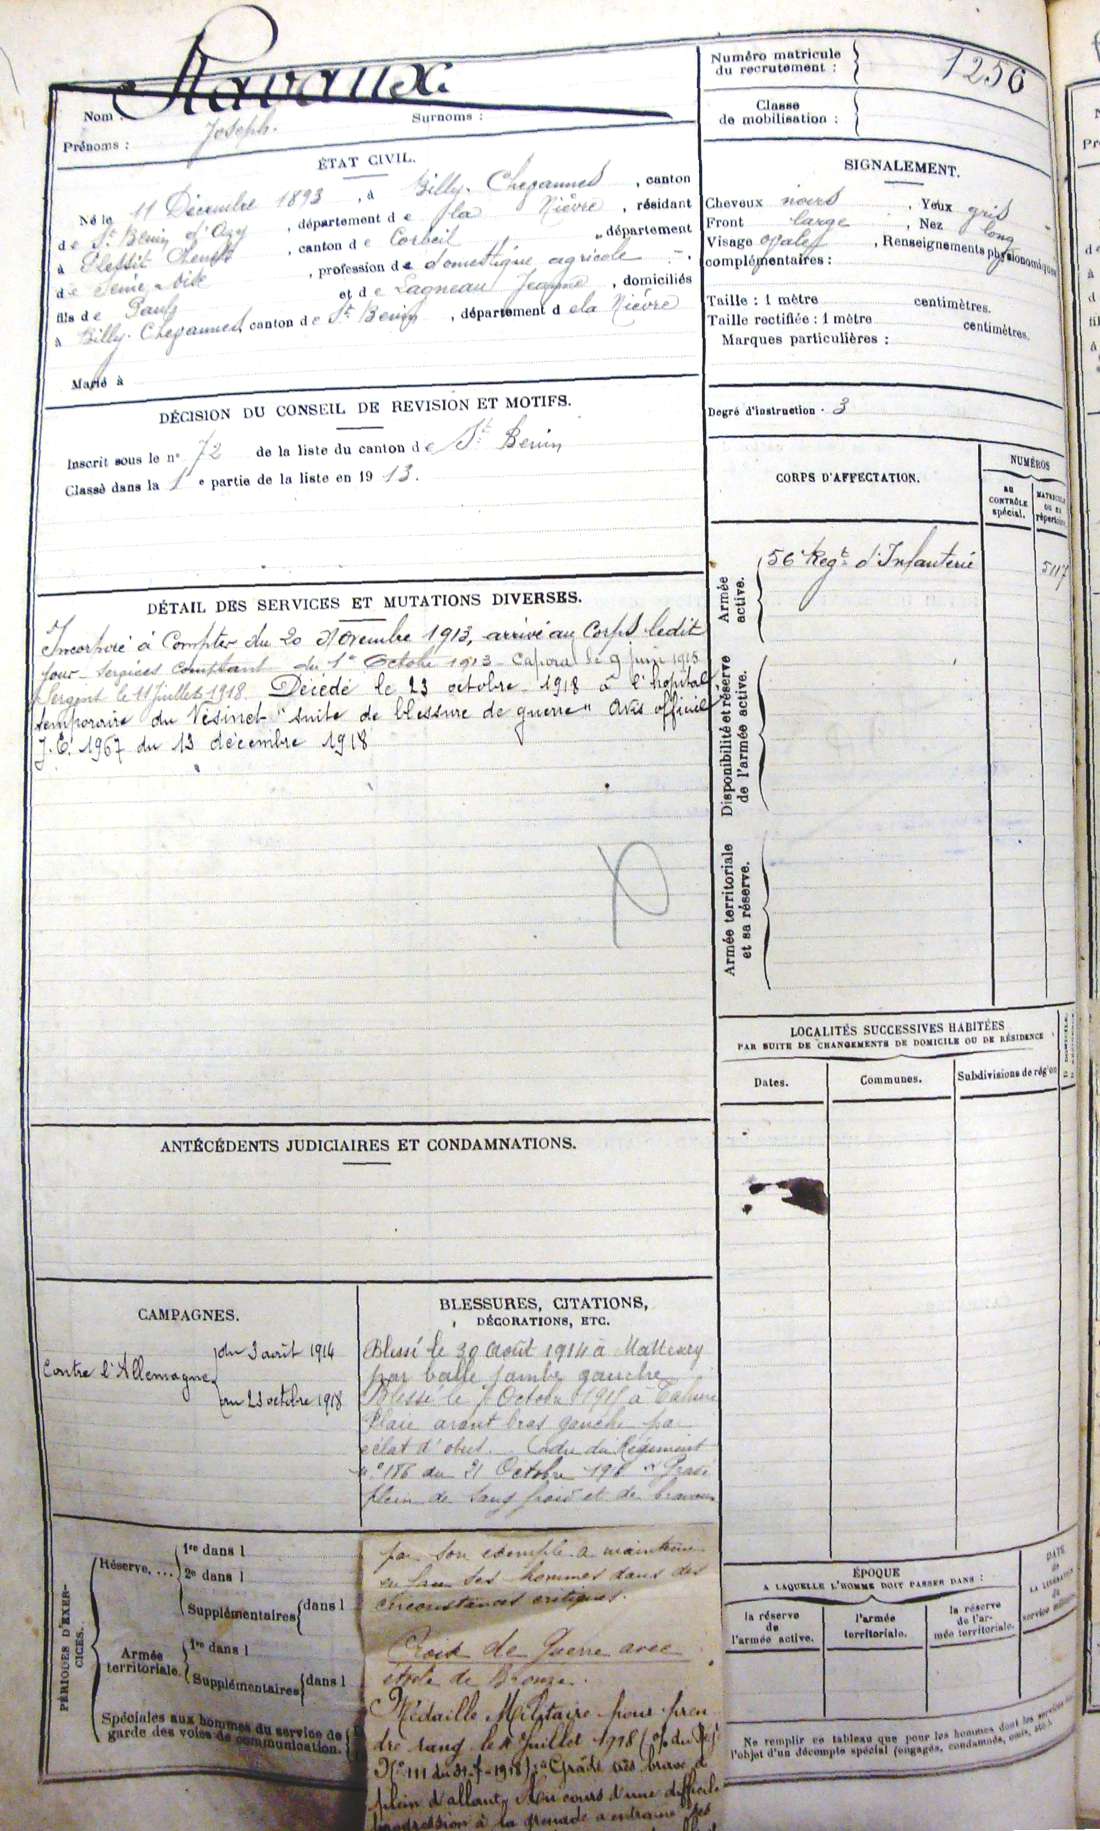 Numéro matricule
du recrutement :
1256
Classe
de mobilisation :
Nom :
Surnoms :
Prénoms : Joseph.
ÉTAT CIVIL.
Né le 11 Décembre 1893, à Billy-Chevannes, canton
de St Benin d'Azy, département de la Nièvre, résidant
à Plessis Chenet, canton de Corbeil, département
de Seine & Oise, profession de domestique agricole,
fils de Paul et de Lagneau Jeanne, domiciliés
à Billy-Chevannes, canton de St Benin, département de la Nièvre
Marié à
SIGNALEMENT.
Cheveux noirs, Yeux gris
Front large, Nez long
Visage ovale, Renseignements physionomiques
complémentaires :
Taille : 1 mètre centimètres.
Taille rectifiée : 1 mètre centimètres.
Marques particulières :
Degré d'instruction · 3
DÉCISION DU CONSEIL DE REVISION ET MOTIFS.
Inscrit sous le n° 72 de la liste du canton de St Benin
Classé dans la 1e partie de la liste en 1913.
CORPS D'AFFECTATION.
NUMÉROS
AU
CONTRÔLE
spécial.
MATRICULE
OU AU
répertoire
Armée
active.
56e Regt d'Infanterie
5117
Disponibilité et réserve
de l'armée active.
Armée territoriale
et sa réserve.
DÉTAIL DES SERVICES ET MUTATIONS DIVERSES.
Incorporé à compter du 20 Novembre 1913, arrivé au Corps ledit
jour - services comptant du 1er Octobre 1913 - Caporal le 9 juin 1915
Sergent le 11 Juillet 1918. Décédé le 23 octobre 1918 à l'hôpital
temporaire du Vésinet "suite de blessure de guerre" avis officiel
J.E. 1967 du 13 décembre 1918
LOCALITÉS SUCCESSIVES HABITÉES
PAR SUITE DE CHANGEMENTS DE DOMICILE OU DE RÉSIDENCE
Dates.
Communes.
Subdivisions de région
ANTÉCÉDENTS JUDICIAIRES ET CONDAMNATIONS.
CAMPAGNES.
Contre l'Allemagne
du 3 août 1914
au 23 octobre 1918
BLESSURES, CITATIONS,
DÉCORATIONS, ETC.
Blessé le 30 Août 1914 à
par balle jambe gauche
Blessé le 7 Octobre 1915 à Tahure
Plaie avant bras gauche par
éclat d'obus. Ordre du Régiment
n° 186 du 21 Octobre Gradé
plein de sang froid et de bravoure
par son exemple a maintenu
ses hommes dans des
circonstances critiques.
Croix de Guerre avec
étoile de Bronze.
Médaille Militaire pour pren
dre rang le Juillet 1918
Gradé très brave et
plein d'allant. Au cours d'une difficile
progression à la grenade a entraîné ses
PÉRIODES D'EXER-
CICES.
Réserve. ...
1re dans l
2e dans l
Supplémentaires dans l
Armée
territoriale.
1re dans l
Supplémentaires dans l
Spéciales aux hommes du service de
garde des voies de communication.
ÉPOQUE
A LAQUELLE L'HOMME DOIT PASSER DANS :
la réserve
de
l'armée active.
l'armée
territoriale.
la réserve
de l'ar-
mée territoriale.
DATE
de
LA LIBÉRATION
du
service militaire.
Ne remplir ce tableau que pour les hommes dont les services
l'objet d'un décompte spécial (engagés, condamnés, omis, etc.).